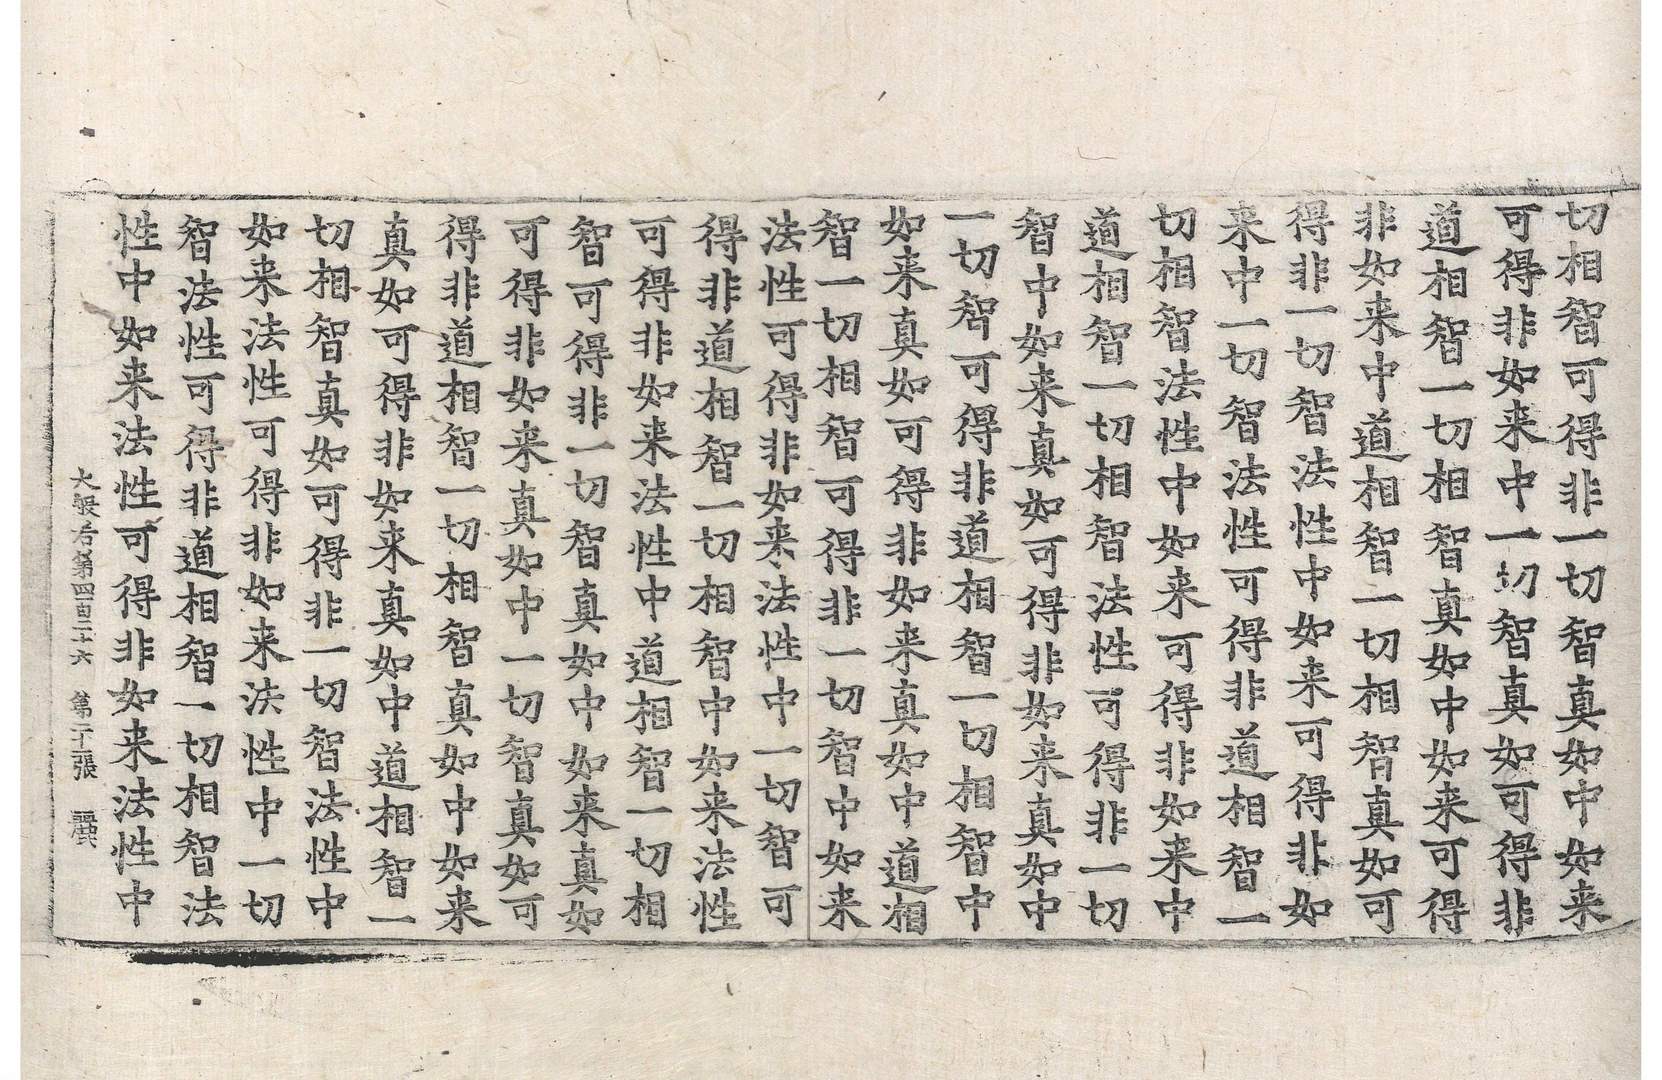 切相智可得非一切智真如中如来
可得非如来中一切智真如可得非
道相智一切相智真如中如来可得
非如来中道相智一切相智真如可
得非一切智法性中如来可得非如
来中一切智法性可得非道相智一
切相智法性中如来可得非如来中
道相智一切相智法性可得非一切
智中如来真如可得非如来真如中
一切智可得非道相智一切相智中
如来真如可得非如来真如中道相
智一切相智可得非一切智中如来
法性可得非如来法性中一切智可
得非道相智一切相智中如来法性
可得非如来法性中道相智一切相
智可得非一切智真如中如来真如
可得非如来真如中一切智真如可
得非道相智一切相智真如中如来
真如可得非如来真如中道相智一
切相智真如可得非一切智法性中
如来法性可得非如来法性中一切
智法性可得非道相智一切相智法
性中如来法性可得非如来法性中
大般若第四百二十六 第二十張 麗